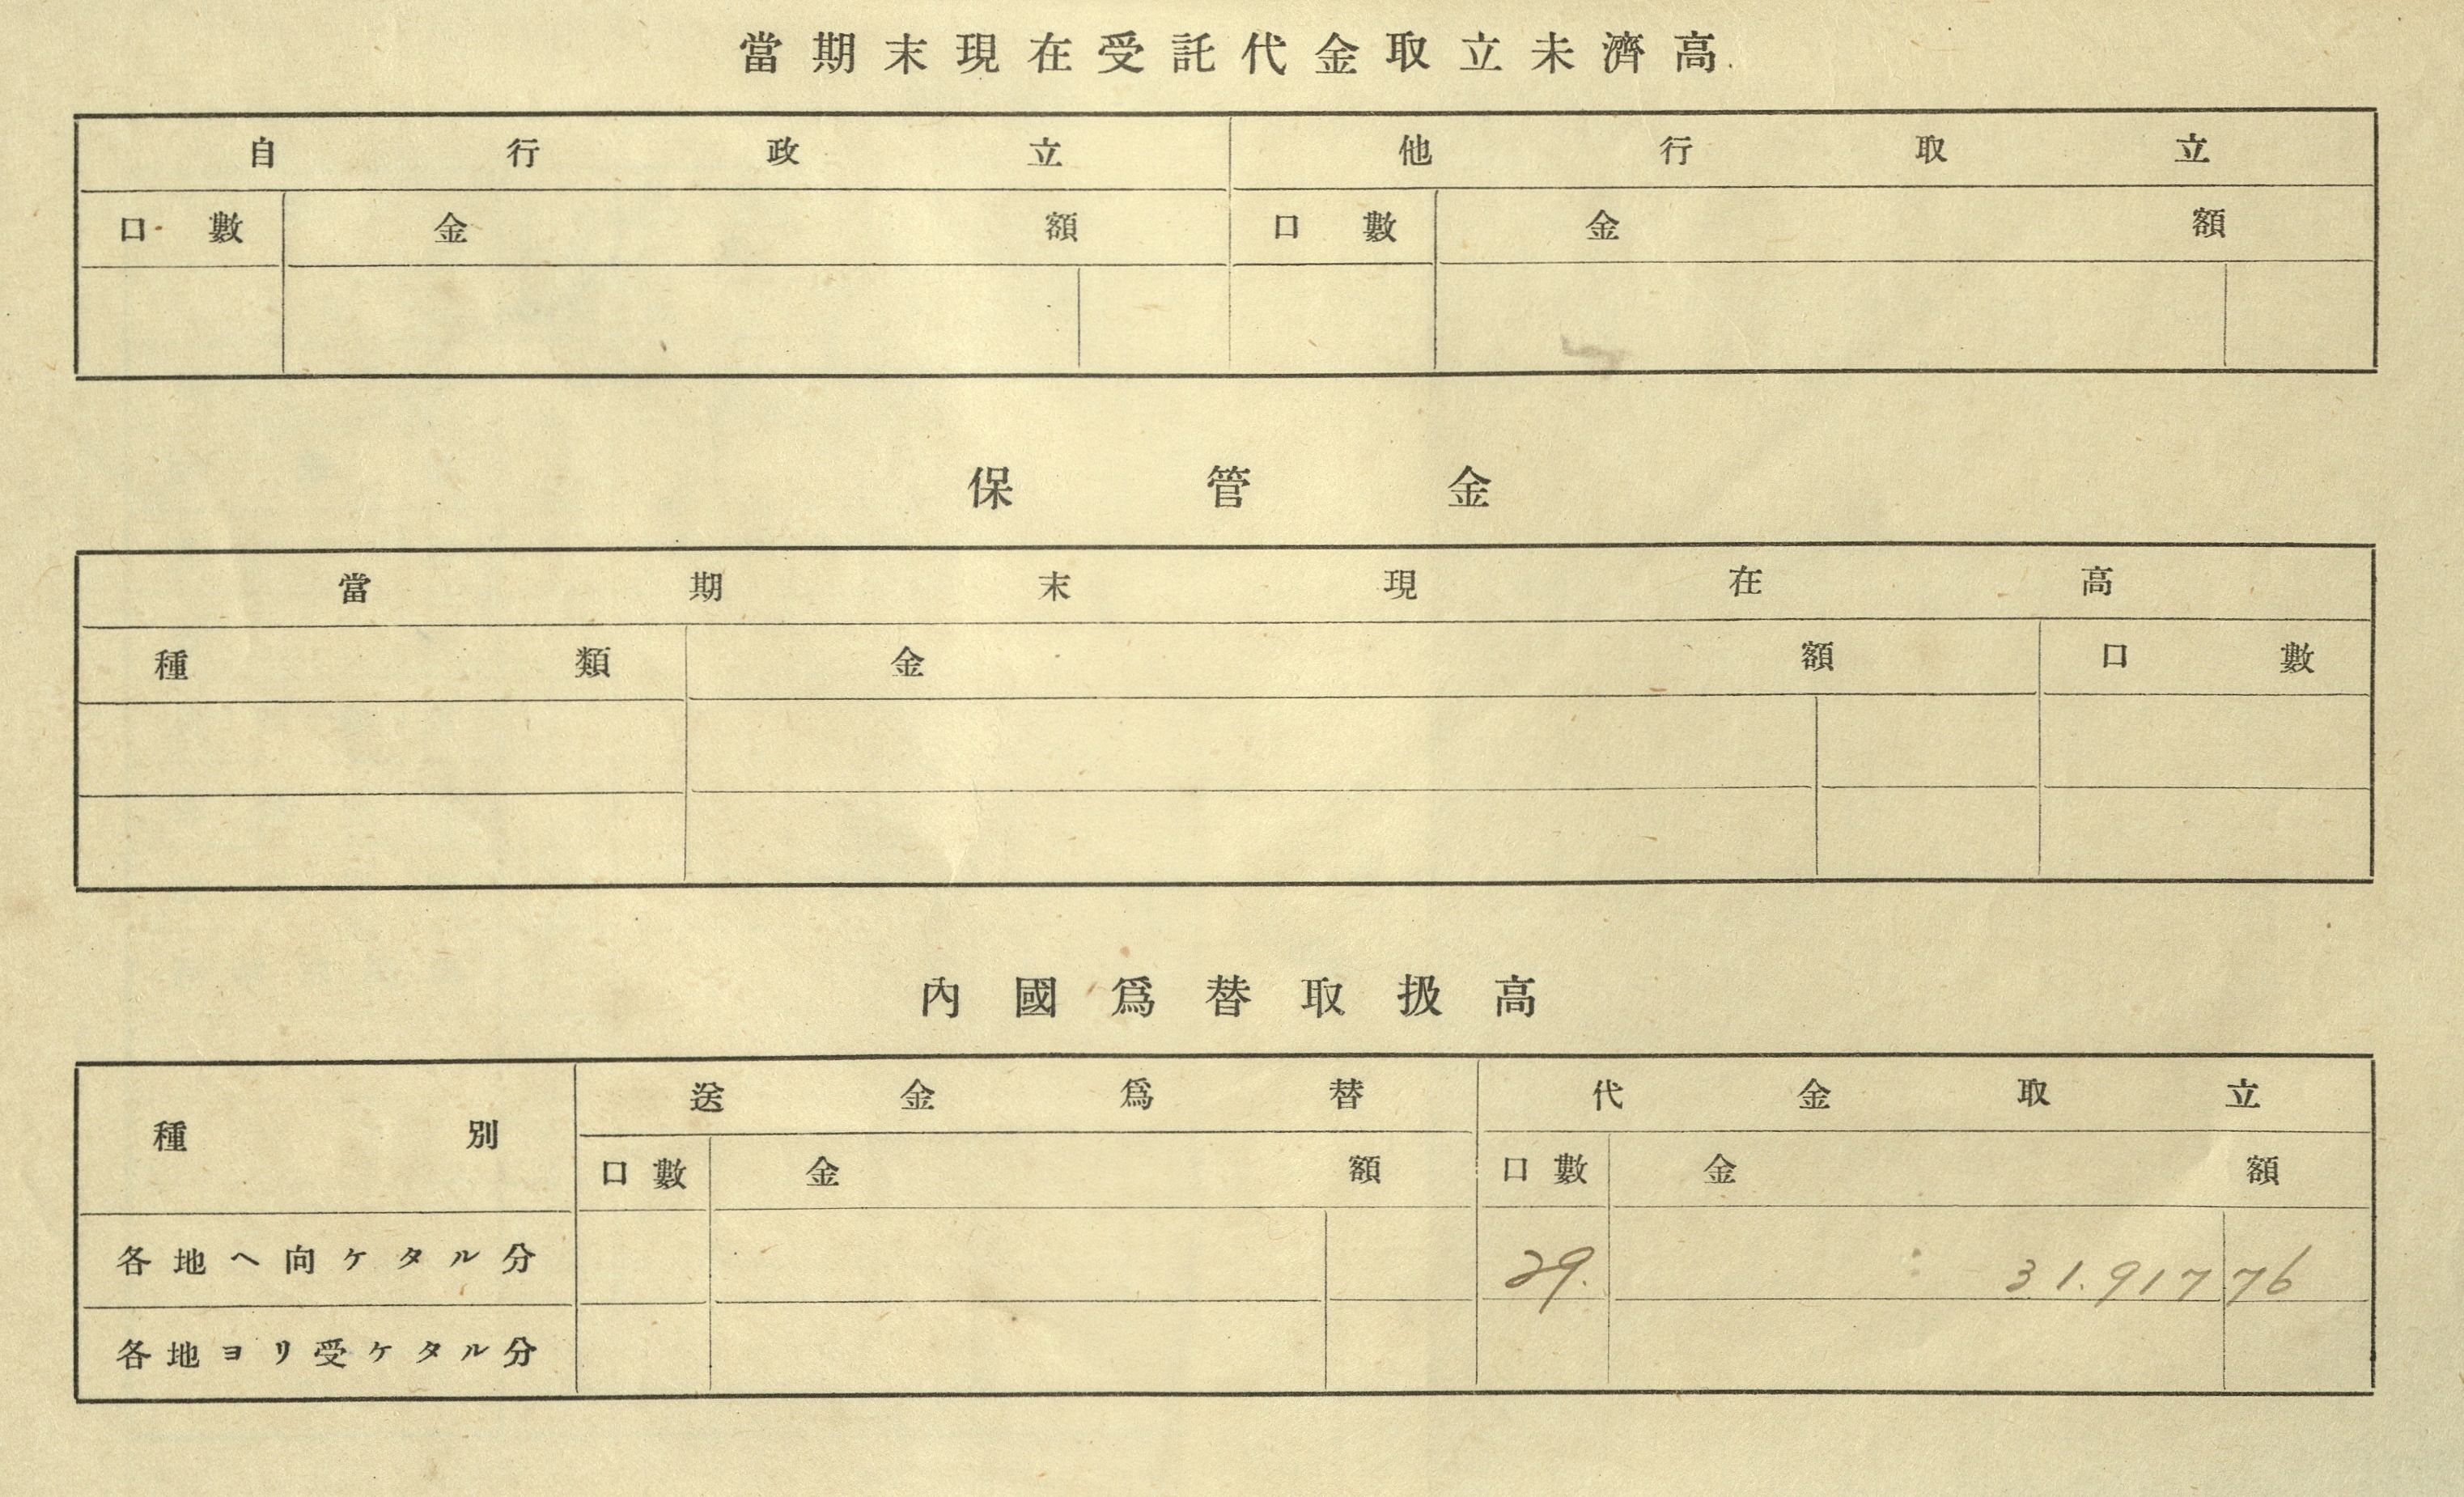 當期末現在受託代金取立未濟高
自行政立 他行取立
口數 金額 口數 金額
保管金
當期末現在高
種類 金額 口數
內國爲替取扱高
種別 送金爲替 代金取立
口數 金額 口數 金額
各地ヘ向ケタル分 29. 31.917 76
各地ヨリ受ケタル分